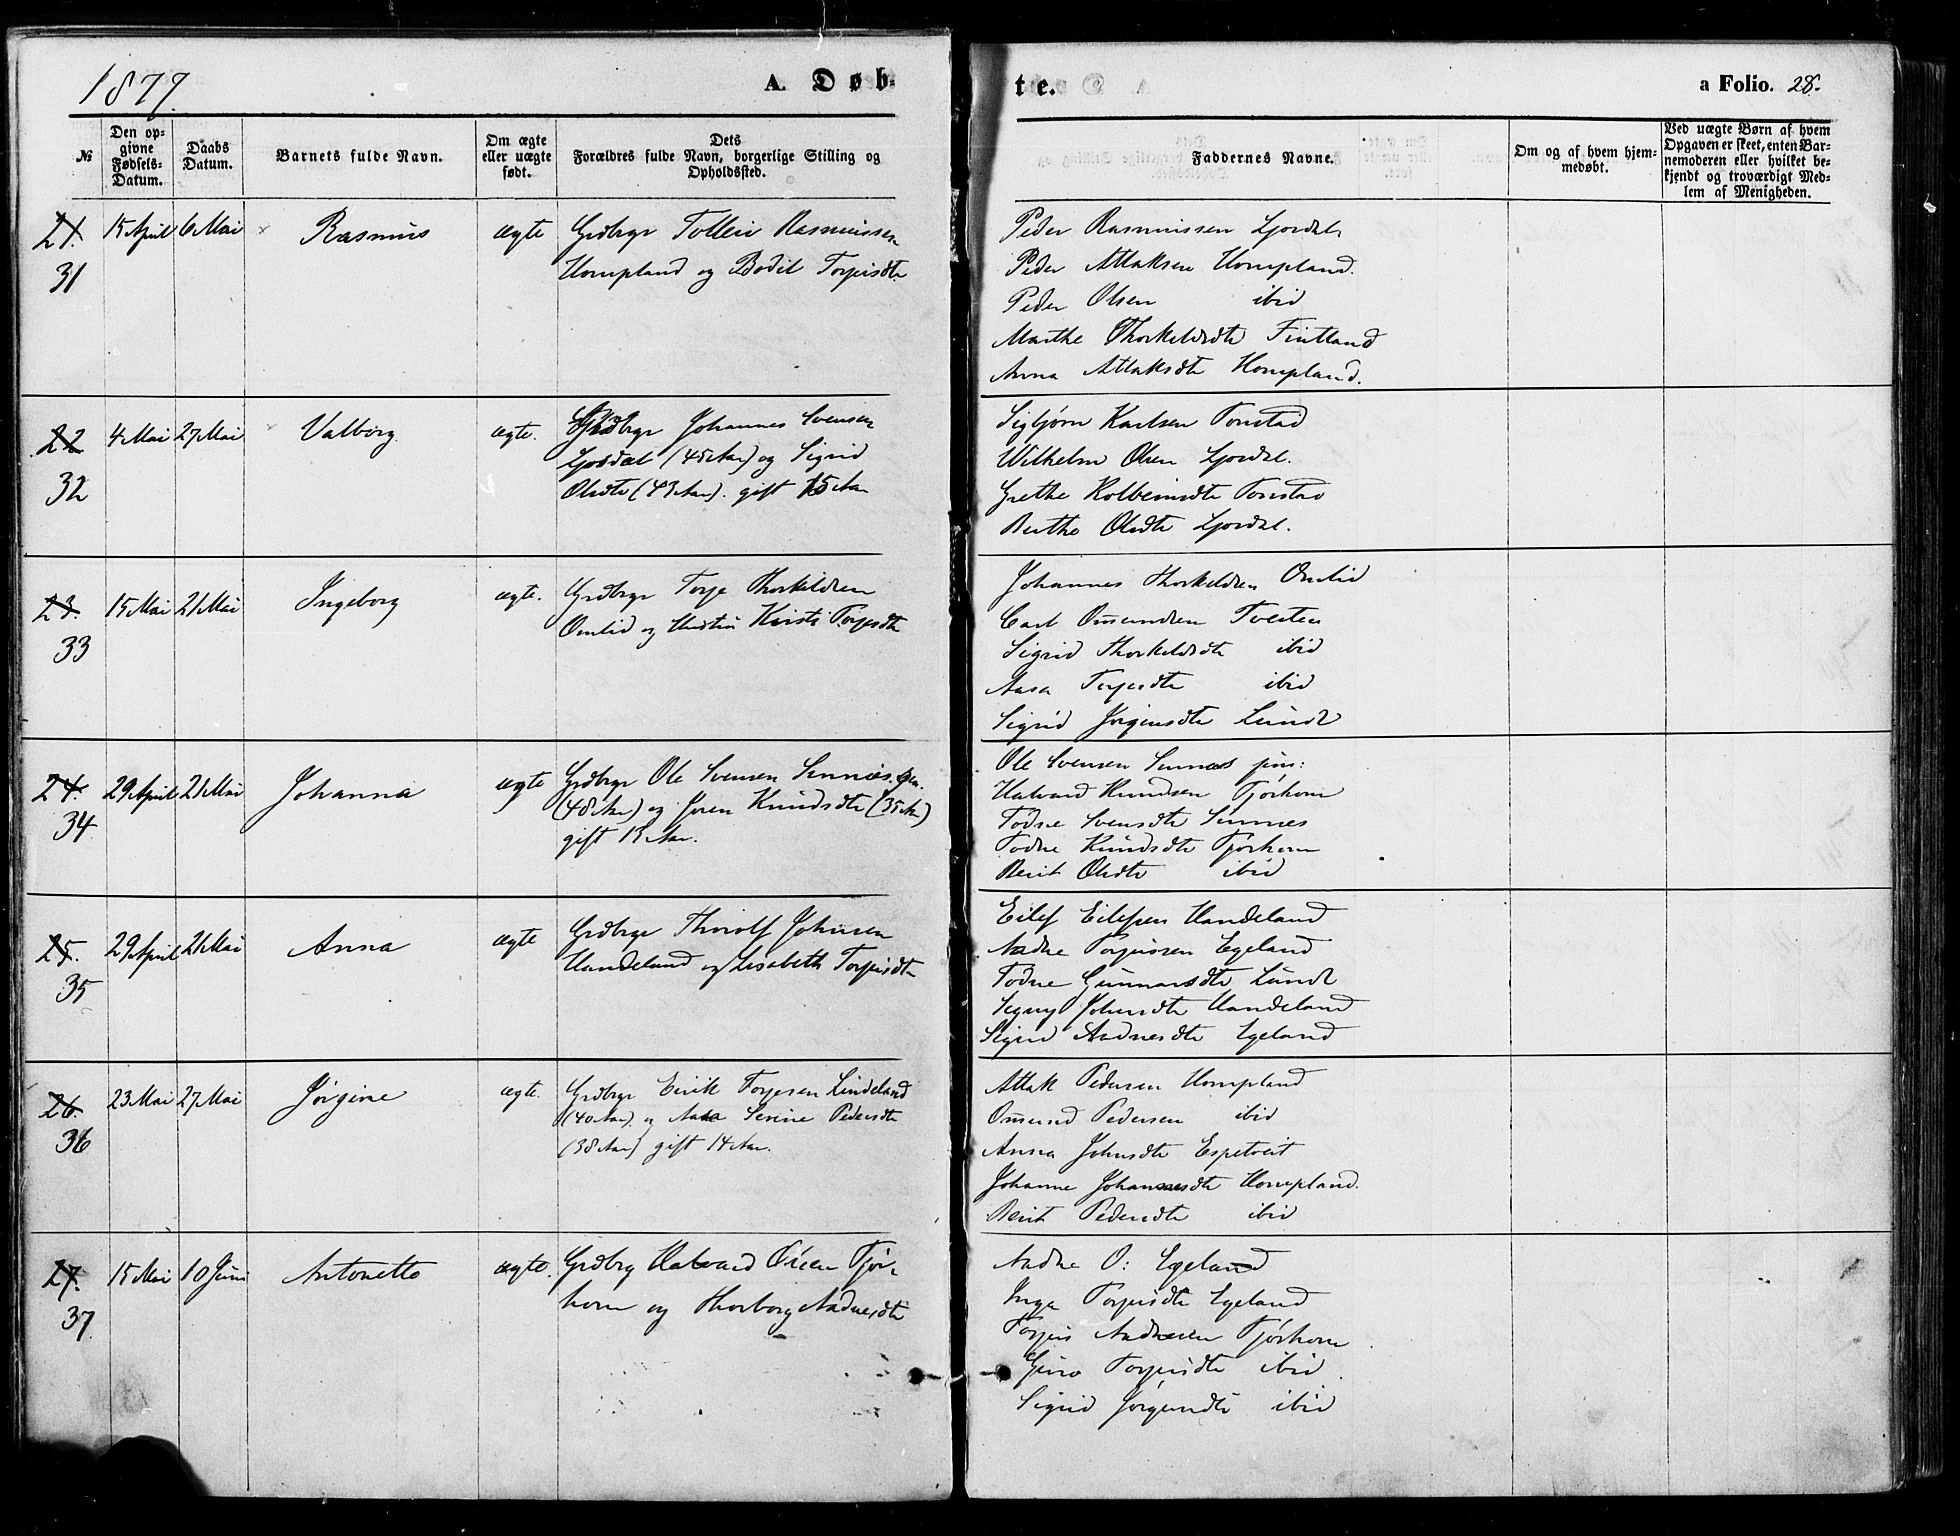 1877.
A. Døb-
te.
a Folio. 28.
№
Den op-
givne
Fødsels-
Datum.
Daabs
Datum.
Barnets fulde Navn.
Om ægte
eller uægte
født.
Dets
Forældres fulde Navn, borgerlige Stilling og
Opholdssted.
Faddernes Navne.
Om og af hvem hjem-
medøbt.
Ved uægte Børn af hvem
Opgaven er skeet, enten Bar-
nemoderen eller hvilket be-
kjendt og troværdigt Med-
lem af Menigheden.
21. 15 April 6 Mai Rasmus ægte Grdbrgr Tollew Rasmussen
31 Hompland og Bodil Torjusdtr.
Peder Rasmussen Ljosdal
Peder Atlaksen Hompland.
Peder Olsen ibid
Marthe Thorkeldsdtr Fintland
Anna Atlaksdtr Hompland.
22 4 Mai 27 Mai Valborg ægte. Grdbrgr Johannes Svensen
32 Ljosdal (45 Aar) og Sigrid
Olsdtr (43 Aar). gift 15 Aar
Sigbjørn Karlsen Tonstad
Wilhelm Olsen Ljosdal.
Grethe Kolbeinsdtr Tonstad
Berthe Olsdtr Ljosdal.
23. 15 Mai 21 Mai Ingeborg ægte. Grdbrgr Torje Thorkildsen
33 Omlid og Hustru Kirsti Torjesdtr
Johannes Thorkeldsen Omlid
Carl Omundsen Tveiten
Sigrid Thorkeldsdtr ibid
Aasa Torjesdtr ibid
Sigrid Jørgensdtr Lunde
24. 29 April 21 Mai Johanna ægte Grdbrgr Ole Svensen Sinnes. sen.
34 (48 Aar) og Joren Knudsdtr (35 Aar)
gift 13 Aar.
Ole Svensen Sinnes jun:
Halvard Knudsen Tjørhom
Todne Svensdtr Sinnes
Todne Knudsdtr Tjørhom
Berit Olsdtr ibid
25. 29 April 21 Mai Anna ægte Grdbrgr Thorolf Johnsen
35 Handeland og Lisabeth Torjusdtr
Eilef Eilefsen Handeland
Aadne Torjussen Egeland
Todne Gunnarsdtr Lunde
Signy Johnsdtr Handeland
Sigrid Aadnesdtr Egeland
26. 23 Mai 27 Mai Jørgine ægte. Grdbrgr Eirik Torjesen Lindeland
36 (40 Aar). og Aasa Serine Pedersdtr
(38 Aar) gift 14 Aar.
Atlak Pedersen Hompland
Omund Pedersen ibid
Anna Johnsdtr Espetveit
Johanne Johannesdtr Hompland.
Berit Pedersdtr ibid
27. 15 Mai 10 Juni Antonette ægte. Grdbrg Halvard Olsen Tjør-
37 hom og Thorborg Aadnesdtr
Aadne O: Egeland
Inga Torjusdtr Egeland
Torjus Aadnesen Tjørhom
Guro Torjusdtr ibid
Sigrid Jørgensdtr ibid